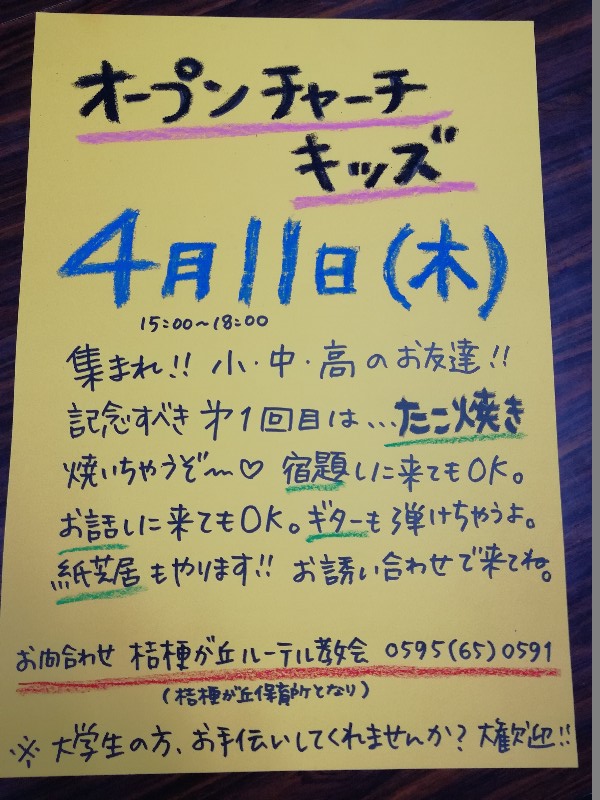 オープンチャーチ
キッズ
4月11日(木)
15:00~18:00
集まれ!! 小・中・高のお友達!!
記念すべき 才1回目は...たこ焼き
焼いちゃうぞ〜♡ 宿題しに来てもOK。
お話しに来てもOK。ギターも弾けちゃうよ。
紙芝居もやります!! お誘い合わせで来てね。
お問合わせ 桔梗が丘ルーテル教会 0595(65)0591
(桔梗が丘保育所となり)
※大学生の方、お手伝いしてくれませんか? 大歓迎!!